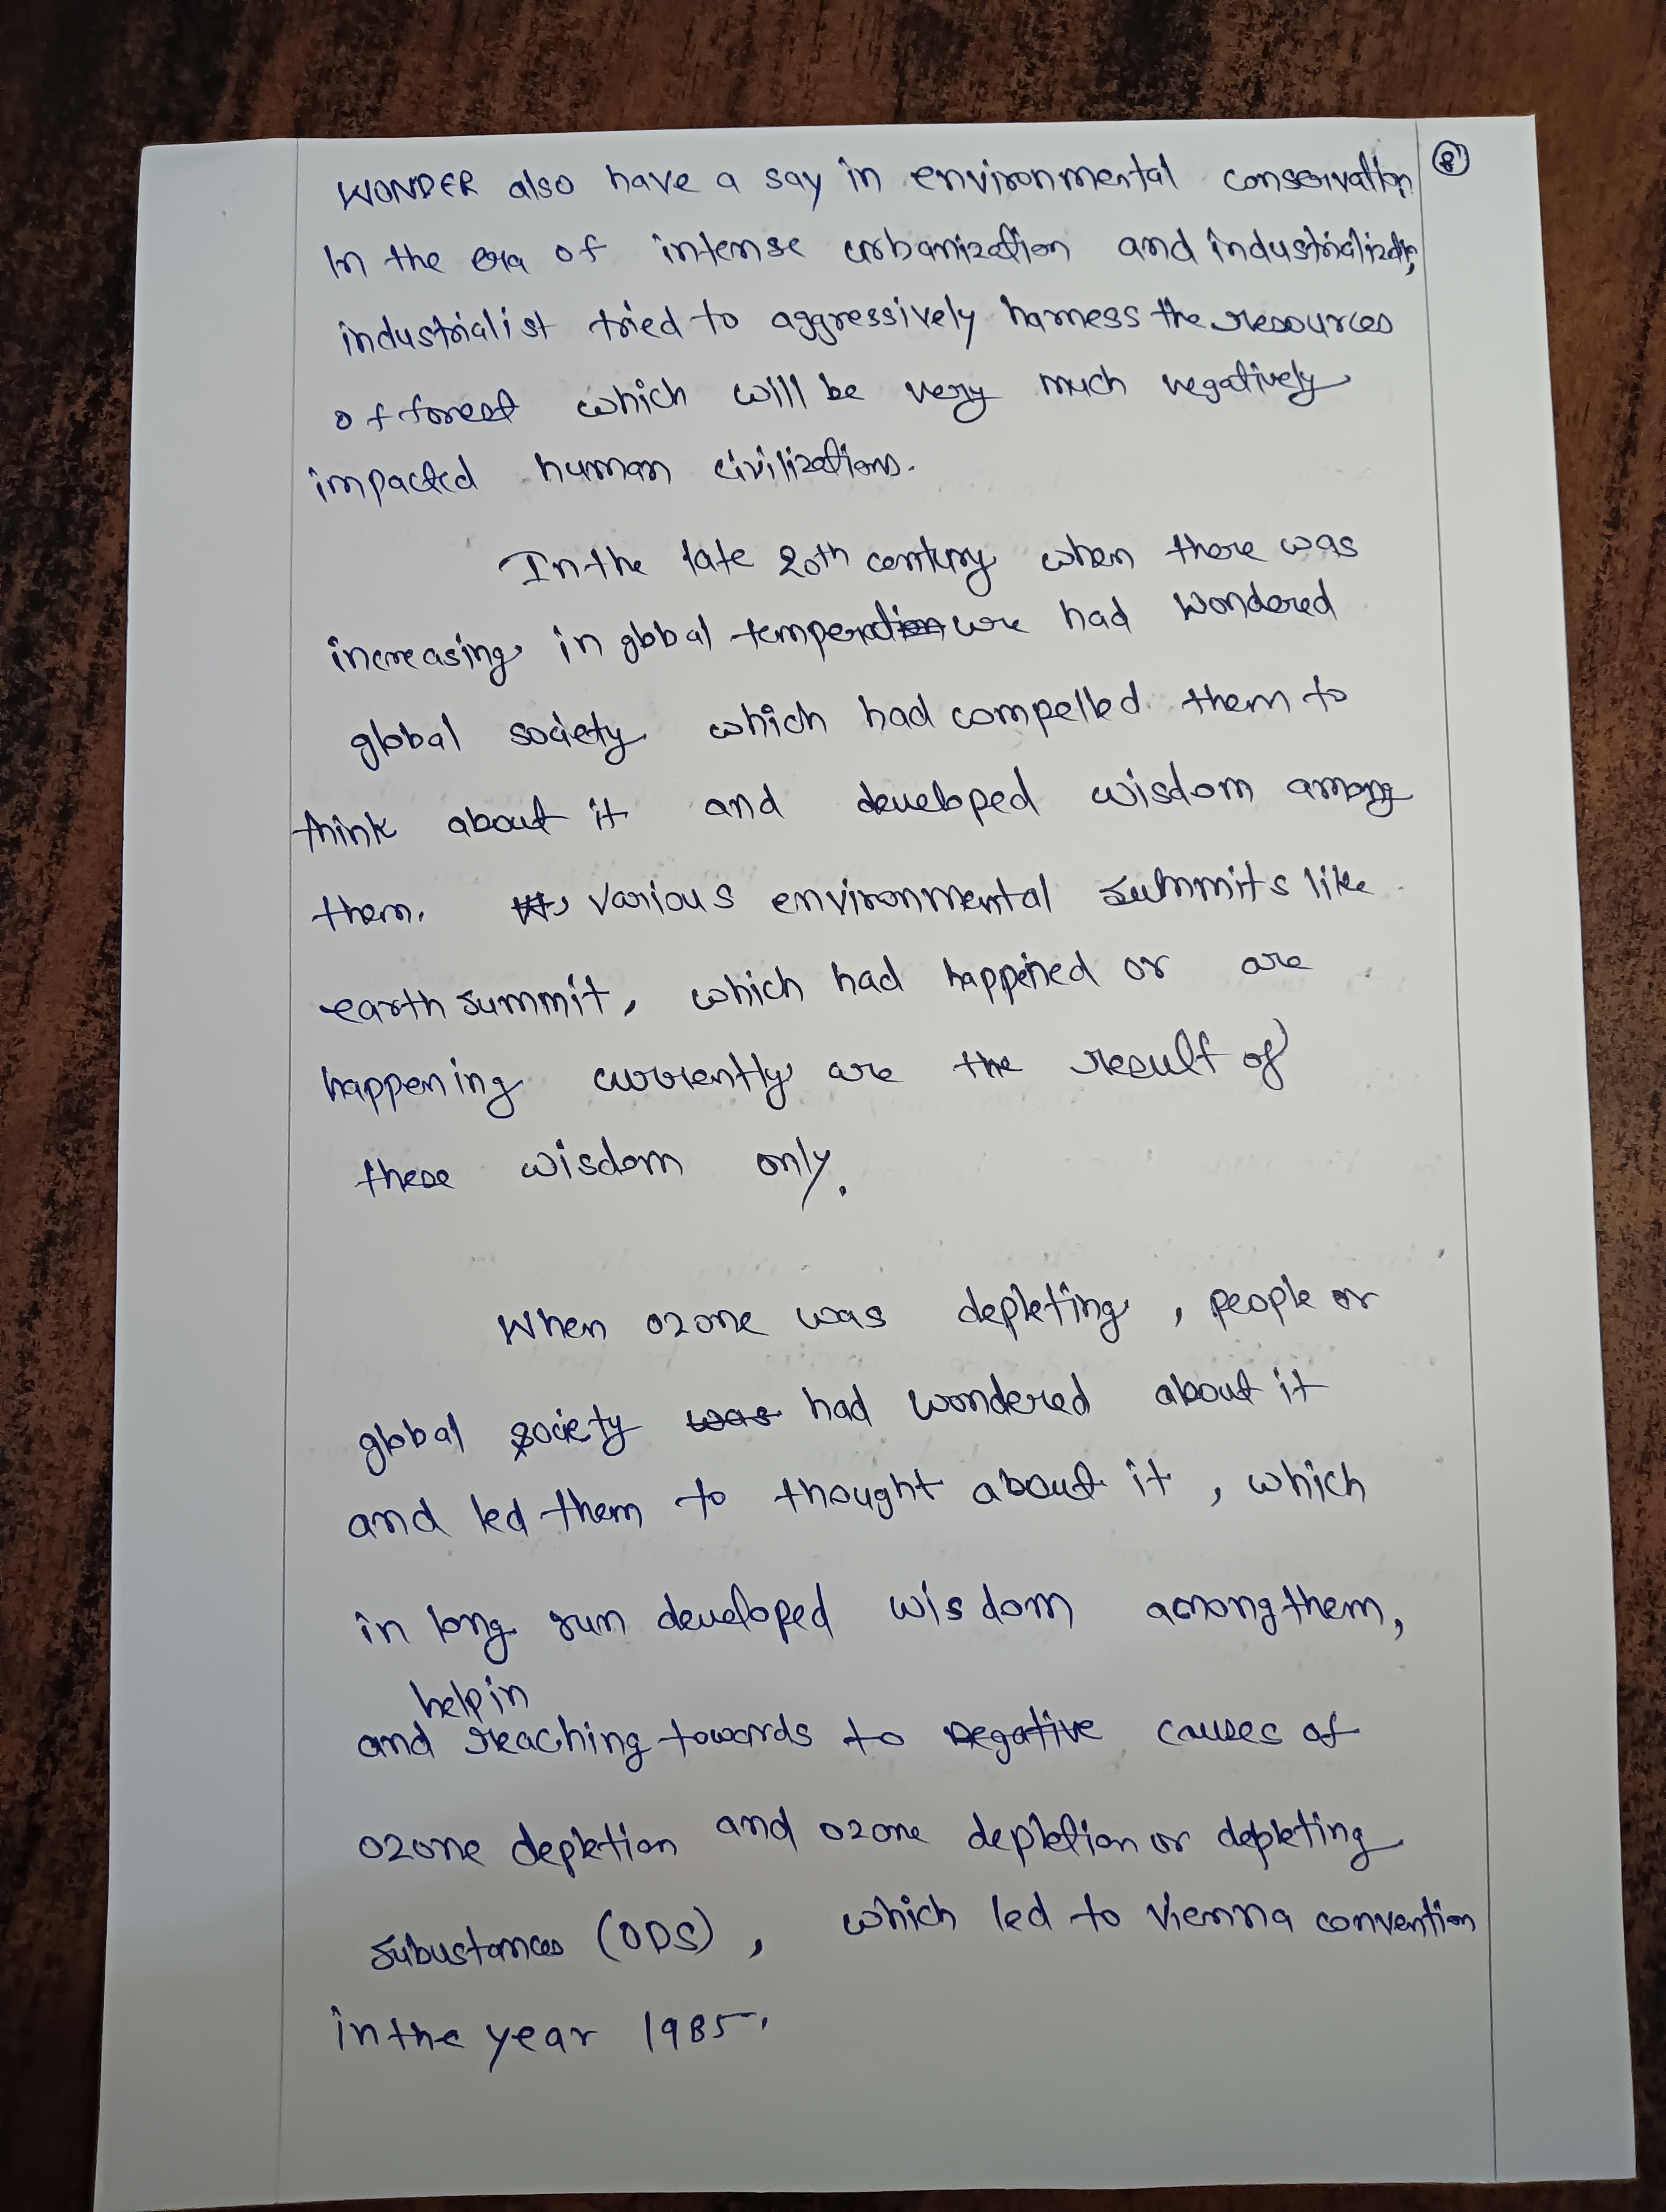 8
WONDER also have a say in environmental conservation
In the era of intense urbanization and industrialization,
industrialist tried to aggressively harness the resources
of forest which will be very much negatively
impacted human civilizations.
In the late 20th century when there was
increasing in global temperature had wondered
global society which had compelled them to
think about it and developed wisdom among
them. various environmental summits like
earth summit, which had happened or are
happening currently are the result of
these wisdom only.
When ozone was depleting, people or
global society was had wondered about it
and led them to thought about it, which
in long run developed wisdom among them,
help in
and reaching towards to negative causes of
ozone depletion and ozone depletion or depleting
subustances (ODS), which led to Vienna convention
in the year 1985.